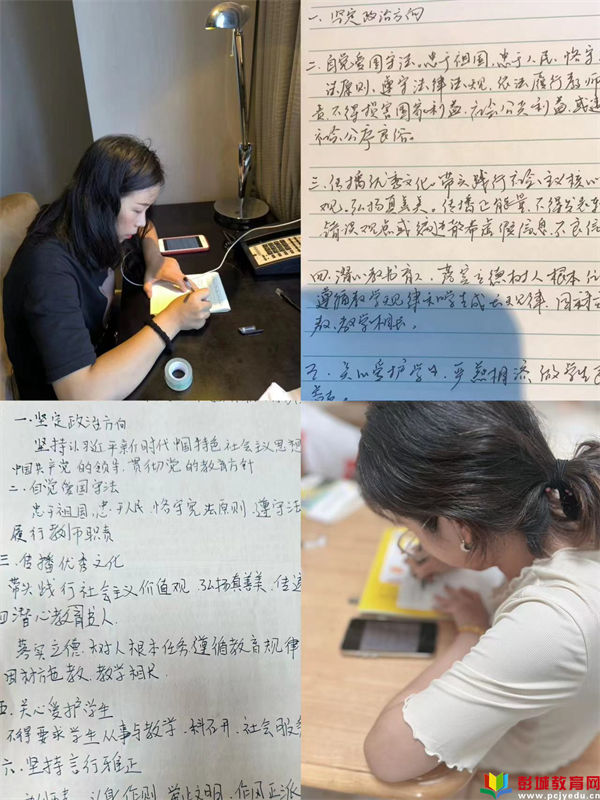 一、坚定政治方向
二、自觉爱国守法。忠于祖国,忠于人民,恪守
法原则,遵守法律法规,依法履行教师
责,不得损害国家利益,社会公共利益,或违
社会公序良俗。
三、传播优秀文化。带头践行社会主义核心
观,弘扬真善美,传播正能量,不得
错误观点或编造散布虚假信息、不良信
四、潜心教书育人,落实立德树人根本任
遵循教学规律和学生成长规律,因材
教,教学相长。
五、关心爱护学生,严慈相济,做学生良
一.坚定政治方向
坚持以习近平新时代中国特色社会主义思想
中国共产党的领导,贯彻党的教育方针
二.自觉爱国守法
忠于祖国,忠于人民,恪守宪法原则,遵守法
履行教师职责
三.传播优秀文化
带头践行社会主义价值观,弘扬真善美,传递
四潜心教育书人.
落实立德树人根本任务遵循教育规律
因材施教,教学相长
五.关心爱护学生
不得要求学生从事与教学、科研、社会服务
六、坚持言行雅正
以身作则,举止文明,作风正派
彭城教育网
www.pcjyedu.cn